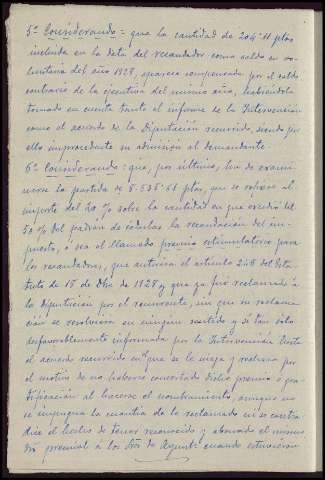 5º Considerando = que la cantidad de 204'11 ptas
incluida en la data del recaudador como saldo en vo-
luntaria del año 1928, aparece compensada por el saldo
contrario de la ejecutiva del mismo año, habiéndola
tomado en cuenta tanto el informe de la Intervención
como el acuerdo de la Diputación recurrido, siendo por
ello improcedente su admisión al demandante.
6º Considerando = que, por último, ha de exami-
narse la partida de 5.535'61 ptas, que se refiere al
importe del 20 % sobre la cantidad en que excedió del
50 % del padrón de cédulas la recaudación del im-
puesto, ó sea el llamado premio estimulatorio para
los recaudadores, que autoriza el articulo del Esta-
tuto de 18 de Dbre de 1928 y que ya fué reclamado á
la Diputación por el recurrente, sin que su reclama-
ción se resolviera en ningun sentido y si tan sólo
desfavorablemente informada por la Intervención hasta
el acuerdo recurrido en que se le niega y rechaza por
el motivo de no haberse concertado dicho premio o gra-
tificación al hacerse el nombramiento, aunque no
se impugna la cuantia de lo reclamado ni se contra-
dice el hecho de tener reconocido y abonado el mismo
premial á los Ayunts cuando estuvieron